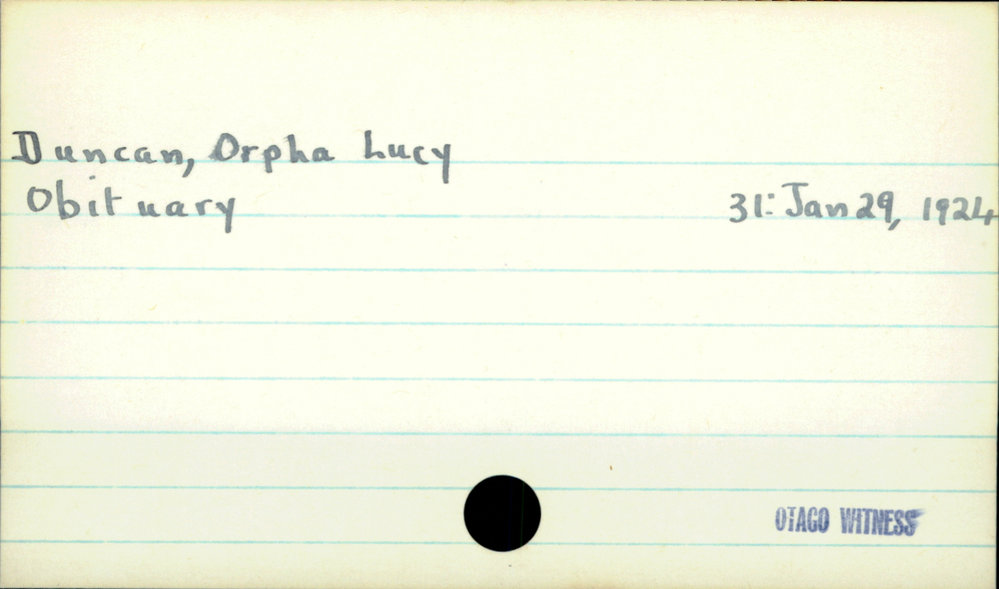 Duncan, Orpha Lucy
Obituary 31: Jan 29, 1924
OTAGO WITNESS